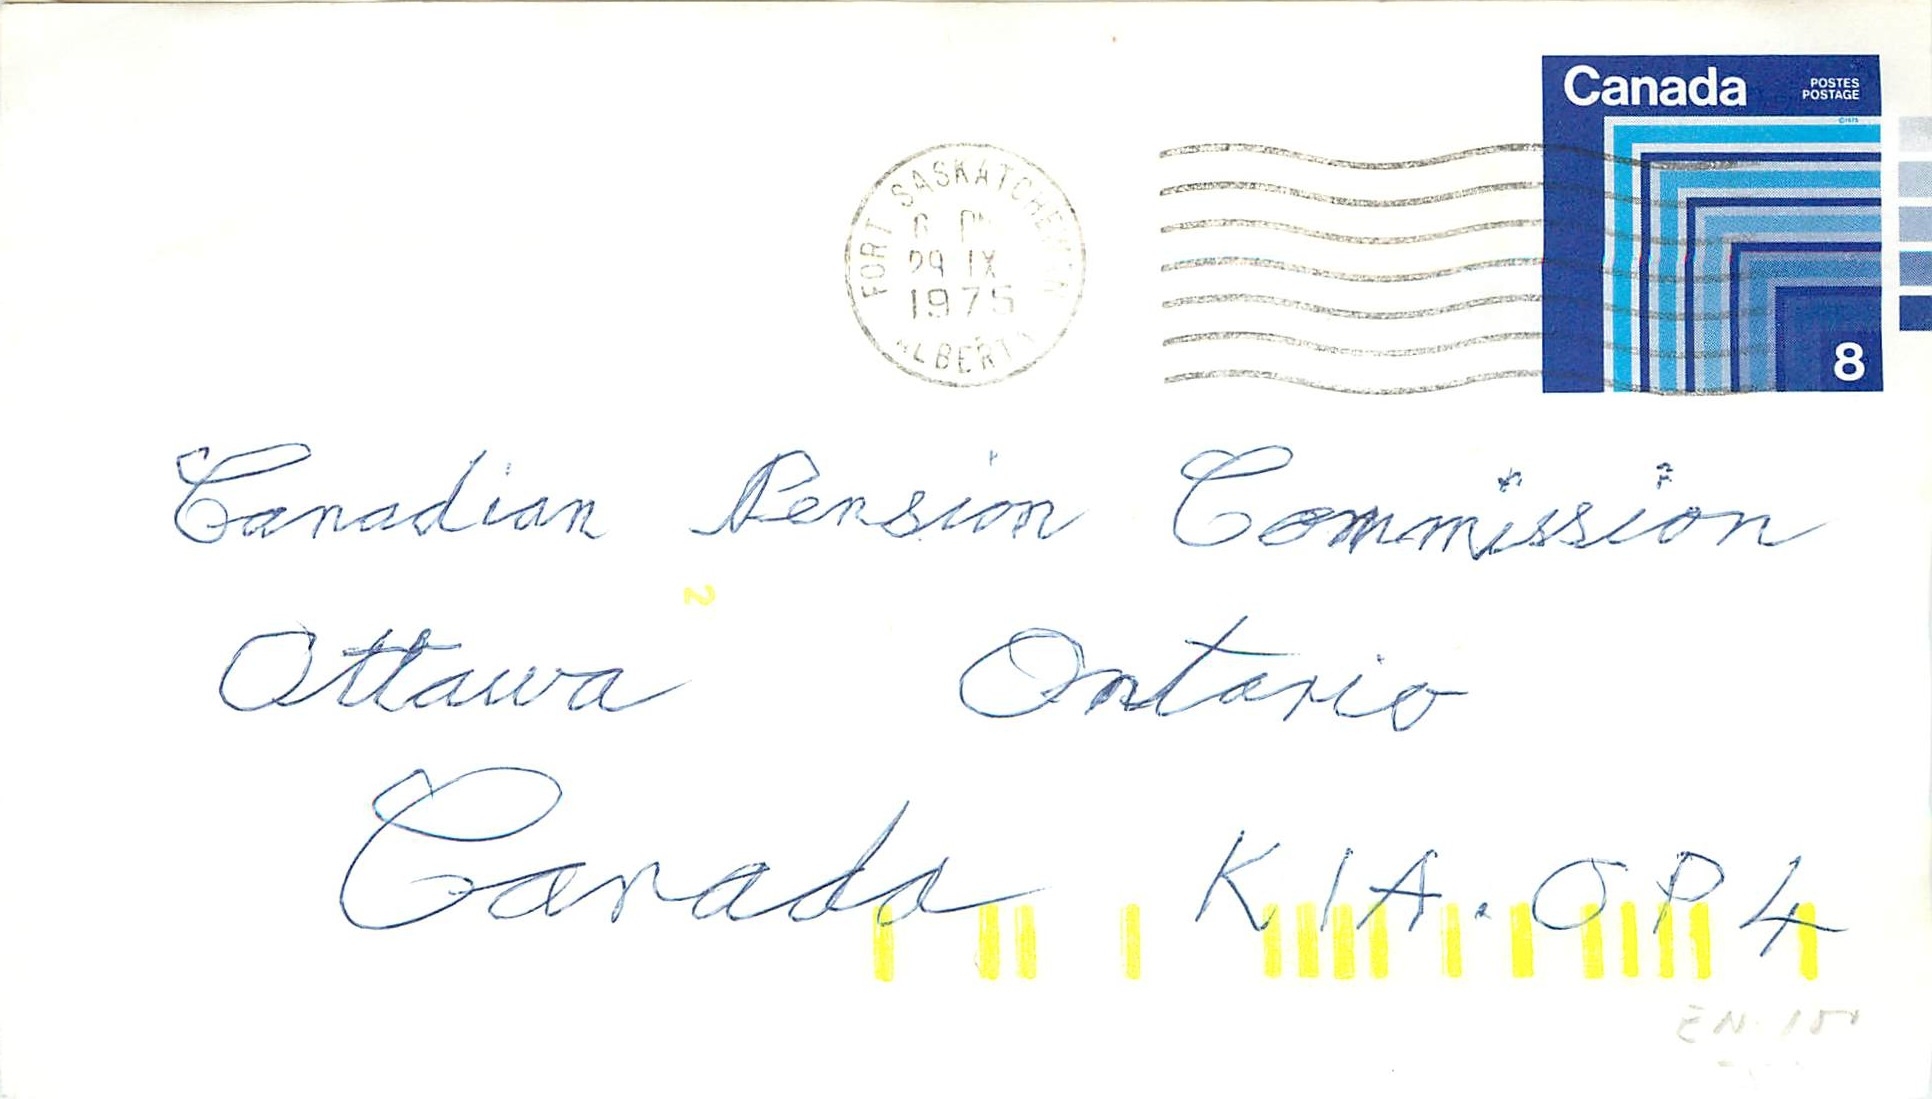 Canada POSTES
POSTAGE
©1975
FORT SASKATCHEWAN
PM
29 IX
1975
ALBERTA
8
Canadian Pension Commission
2
Ottawa Ontario
Canada K1A.0P4